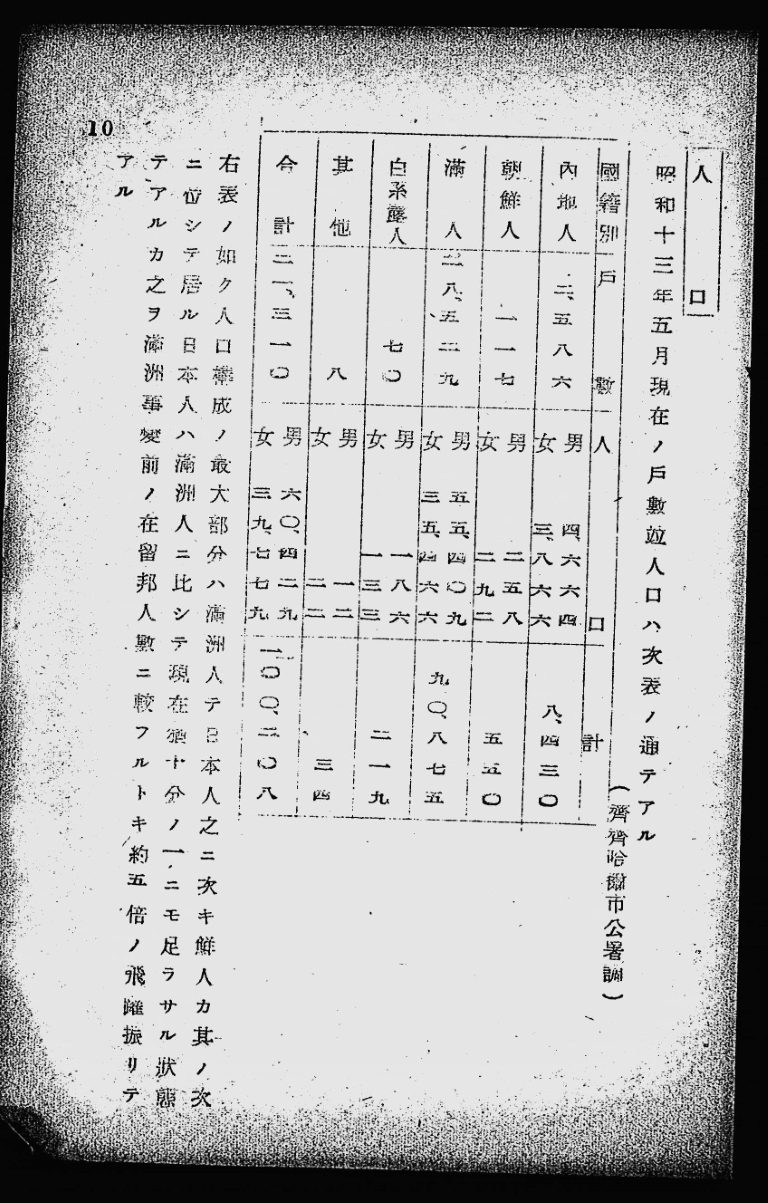 人口
昭和十三年五月現在ノ戶數竝人口ハ次表ノ通テアル
(齊齊哈爾市公署調)
國籍別 戶數 人口 計
內地人 二、五八六 男 四、六六四 女 三、八六六 八、四三〇
朝鮮人 一一七 男 二五八 女 二九二 五五〇
滿人 二八、五二九 男 五五、四〇九 女 三五、四六六 九〇、八七五
白系露人 七〇 男 一八六 女 一三三 二一九
其他 八 男 一二 女 二二 三四
合計 三一、三一〇 男 六〇、四二九 女 三九、七七九 一〇〇、二〇八
右表ノ如ク人口構成ノ最大部分ハ滿洲人テ日本人之ニ次キ鮮人カ其ノ次
ニ位シテ居ル日本人ハ滿洲人ニ比シテ現在猶十分ノ一ニモ足ラサル狀態
テアルカ之ヲ滿洲事變前ノ在留邦人數ニ較フルトキ約五倍ノ飛躍振リテ
アル
10